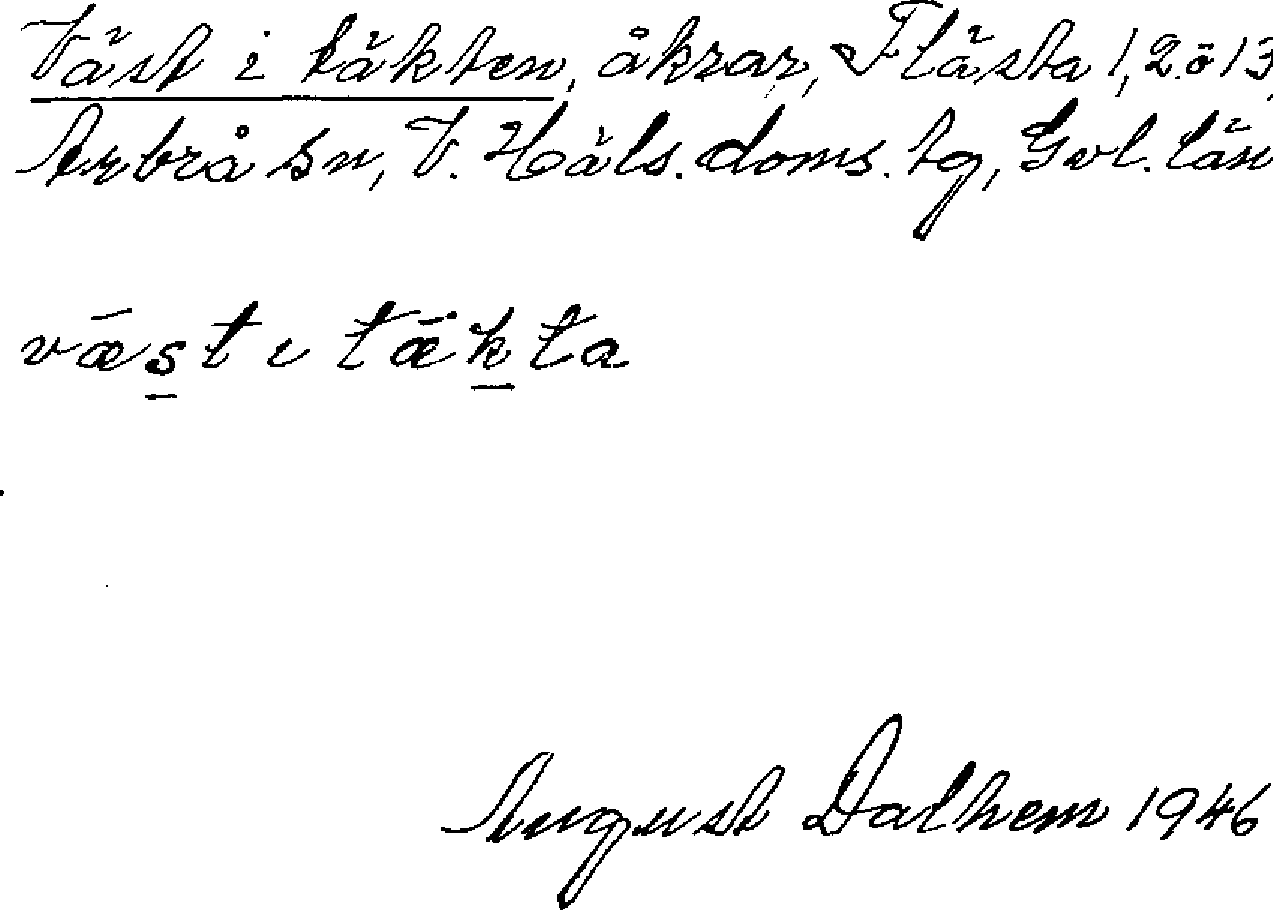 Väst i täkten, åkrar, Flästa 1, 2. o 13,
Arbrå sn, V. Häls. doms. tg, Gvl. län
væst ι tækta
August Dalhem 1946